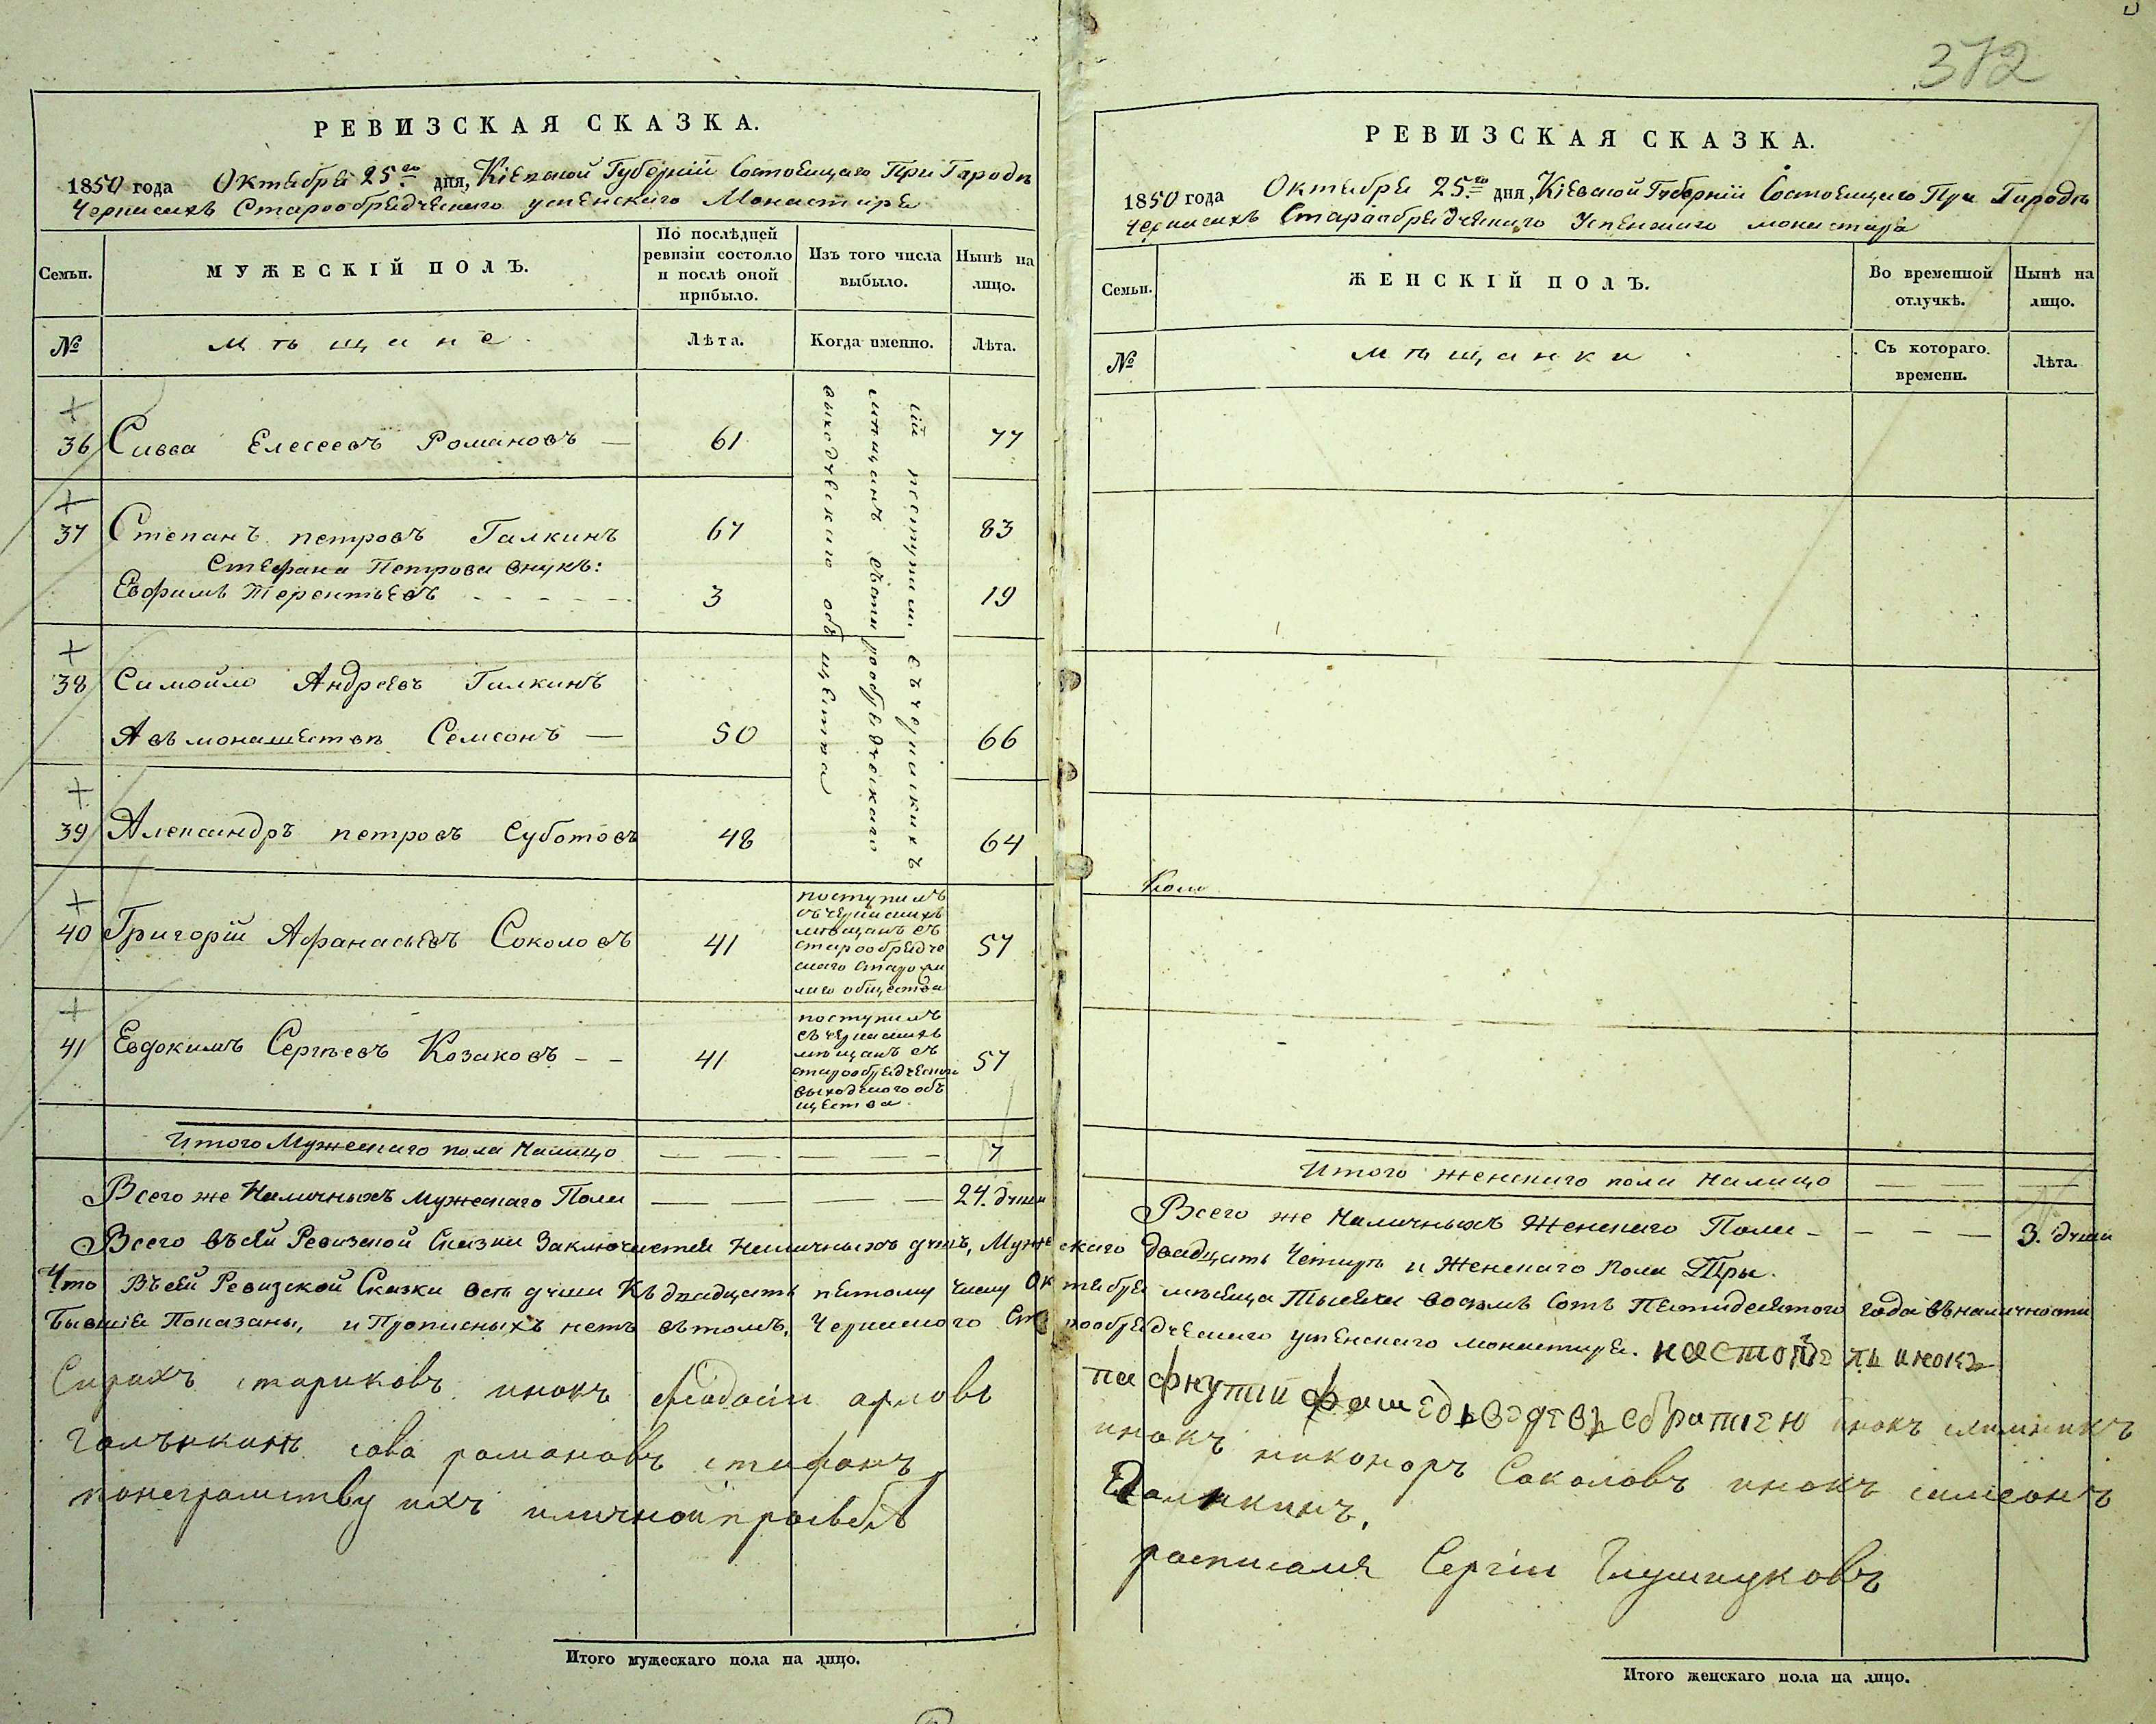 372
РЕВИЗСКАЯ СКАЗКА.
1850 года Октября 25го дня, Кіевской Губерніи Состоящаго При Городѣ
Черкасахъ Старообрядческаго успенскаго Монастыря
Семьи.
МУЖЕСКІЙ ПОЛЪ.
По послѣдней ревизіи состояло и послѣ оной прибыло.
Изъ того числа выбыло.
Нынѣ на лицо.
№
мѣщане
Лѣта.
Когда именно.
Лѣта.
36 Савва Елесеевъ Романовъ — 61 77
37 Степанъ петровъ Галкинъ 67 83
Стефана Петрова внукъ:
Евфимъ Терентьевъ 3 19
38 Самойло Андреевъ Галкинъ
А въ монашествѣ Самсонъ — 50 66
39 Александръ петровъ Суботовъ 48 64
сій поступили съ черкаскихъ
мѣщанъ старообрядческаго
выходческаго общества
40 Григорій Афанасьевъ Соколовъ 41 57
поступилъ
съ черкаскихъ
мѣщанъ съ
старообрядче
скаго
общества
41 Евдокимъ Сергѣевъ Козаковъ — — 41 57
поступилъ
съ черкаскихъ
мѣщанъ съ
старообрядческаго
выходскаго об
щества.
Итого Мужескаго пола Налицо — — — — 7
Всего же Наличныхъ Мужескаго Пола — — — — 24. души
РЕВИЗСКАЯ СКАЗКА.
1850 года Октября 25го дня, Кіевской Губерніи Состоящаго При Городѣ
Черкасахъ Старообрядческаго Успенскаго монастыря
Семьи.
ЖЕНСКІЙ ПОЛЪ.
Во временной отлучкѣ.
Нынѣ на лицо.
№
мѣщанки
Съ котораго времени.
Лѣта.
Итого женскаго пола Налицо — — —
Всего же Наличныхъ Женскаго Пола — — — — 3. души
Всего въ сей Ревизской Сказки Заключается Наличныхъ душъ, Мужескаго двадцать Четыри и Женскаго Пола Три.
Что Въ сей Ревизской Сказки всѣ души Къ двадцать пятому числу Октября мѣсяца Тысяча восемъ Сотъ Пятидесятого года въ наличности
Бывшіе Показаны, и Прописныхъ нетъ въ томъ, Черкаского Старообрядческаго успенскаго монастыря. настоятель инокъ
пафнутий съ братиею инокъ
инокъ никоноръ Соколовъ инокъ самсонъ
Галкинъ,
стариковъ инокъ
сава романовъ стефанъ
понеграмству ихъ и личной прозьбѣ
росписался Сергіи Глушпуковъ
Итого мужескаго пола на лицо.
Итого женскаго пола на лицо.